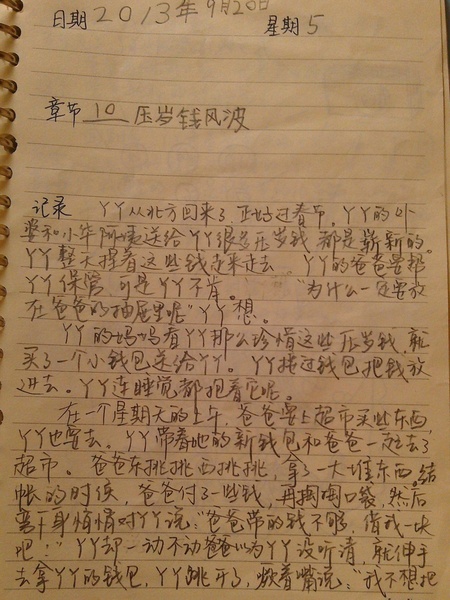 日期 2013年9月20日 星期 5
章节 10 压岁钱风波
记录 丫丫从北方回来了,正好过春节,丫丫的外
婆和小华阿姨送给丫丫很多压岁钱,都是崭新的。
丫丫整天捏着这些钱走来走去。丫丫的爸爸要帮
丫丫保管,可是丫丫不肯。“为什么一定要放
在爸爸的抽屉里呢”丫丫想。
丫丫的妈妈看丫丫那么珍惜这些压岁钱,就
买了一个小钱包送给丫丫。丫丫接过钱包把钱放
进去。丫丫连睡觉都抱着它呢。
在一个星期天的上午,爸爸要上超市买些东西,
丫丫也要去。丫丫带着她的新钱包和爸爸一起去了
超市。爸爸东挑挑西挑挑,拿了一大堆东西。结
帐的时侯,爸爸付了一些钱,再掏掏口袋,然后
弯下身悄悄对丫丫说:“爸爸带的钱不够,借我一块
吧!”丫丫却一动不动爸爸以为丫丫没听清,就伸手
去拿丫丫的钱包,丫丫跳开了,噘着嘴说:“我不想把